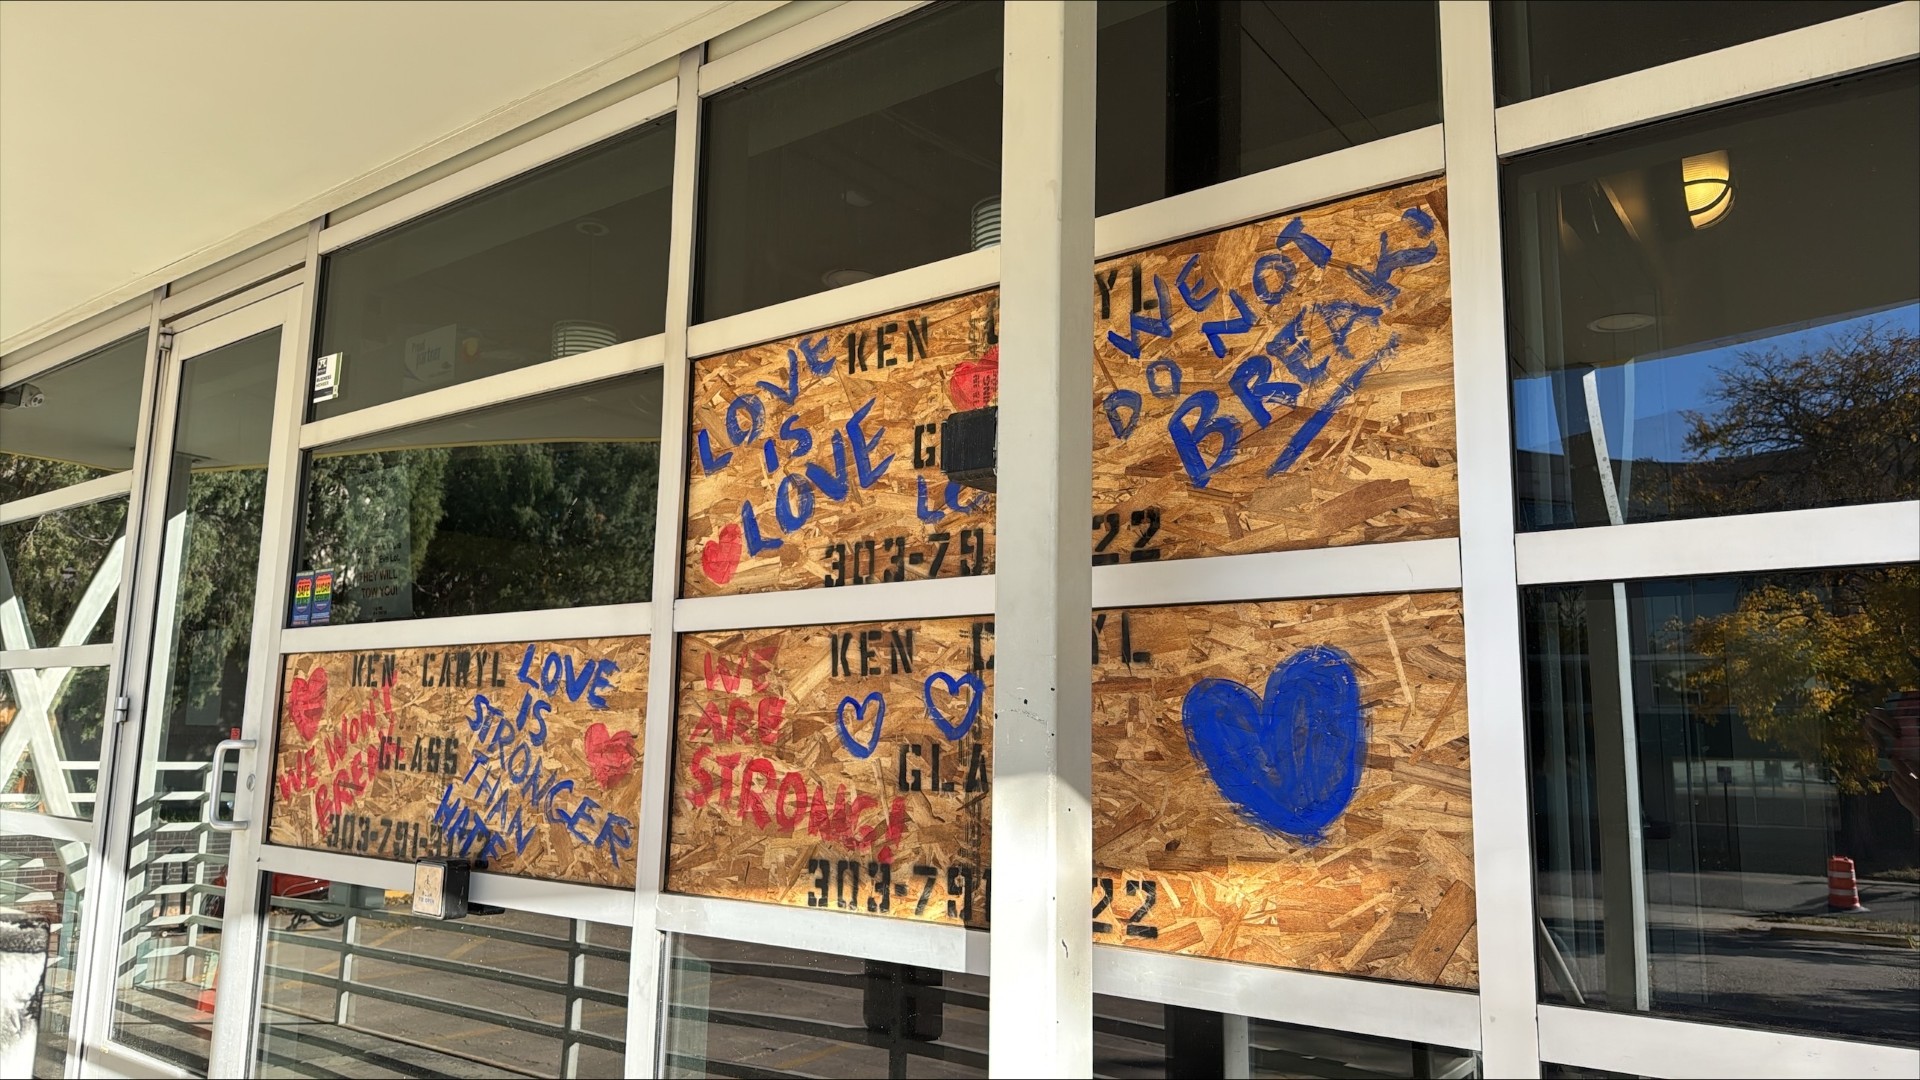 KEN
LOVE
IS
LOVE
303-79
YL
WE
DO NOT
BREAK!
22
THEY WILL
TOW YOU!
KEN CARYL
GLASS
WE WON'T
LOVE
IS
STRONGER
THAN
HATE
KEN
WE
ARE
STRONG!
GLA
303-79
YL
22